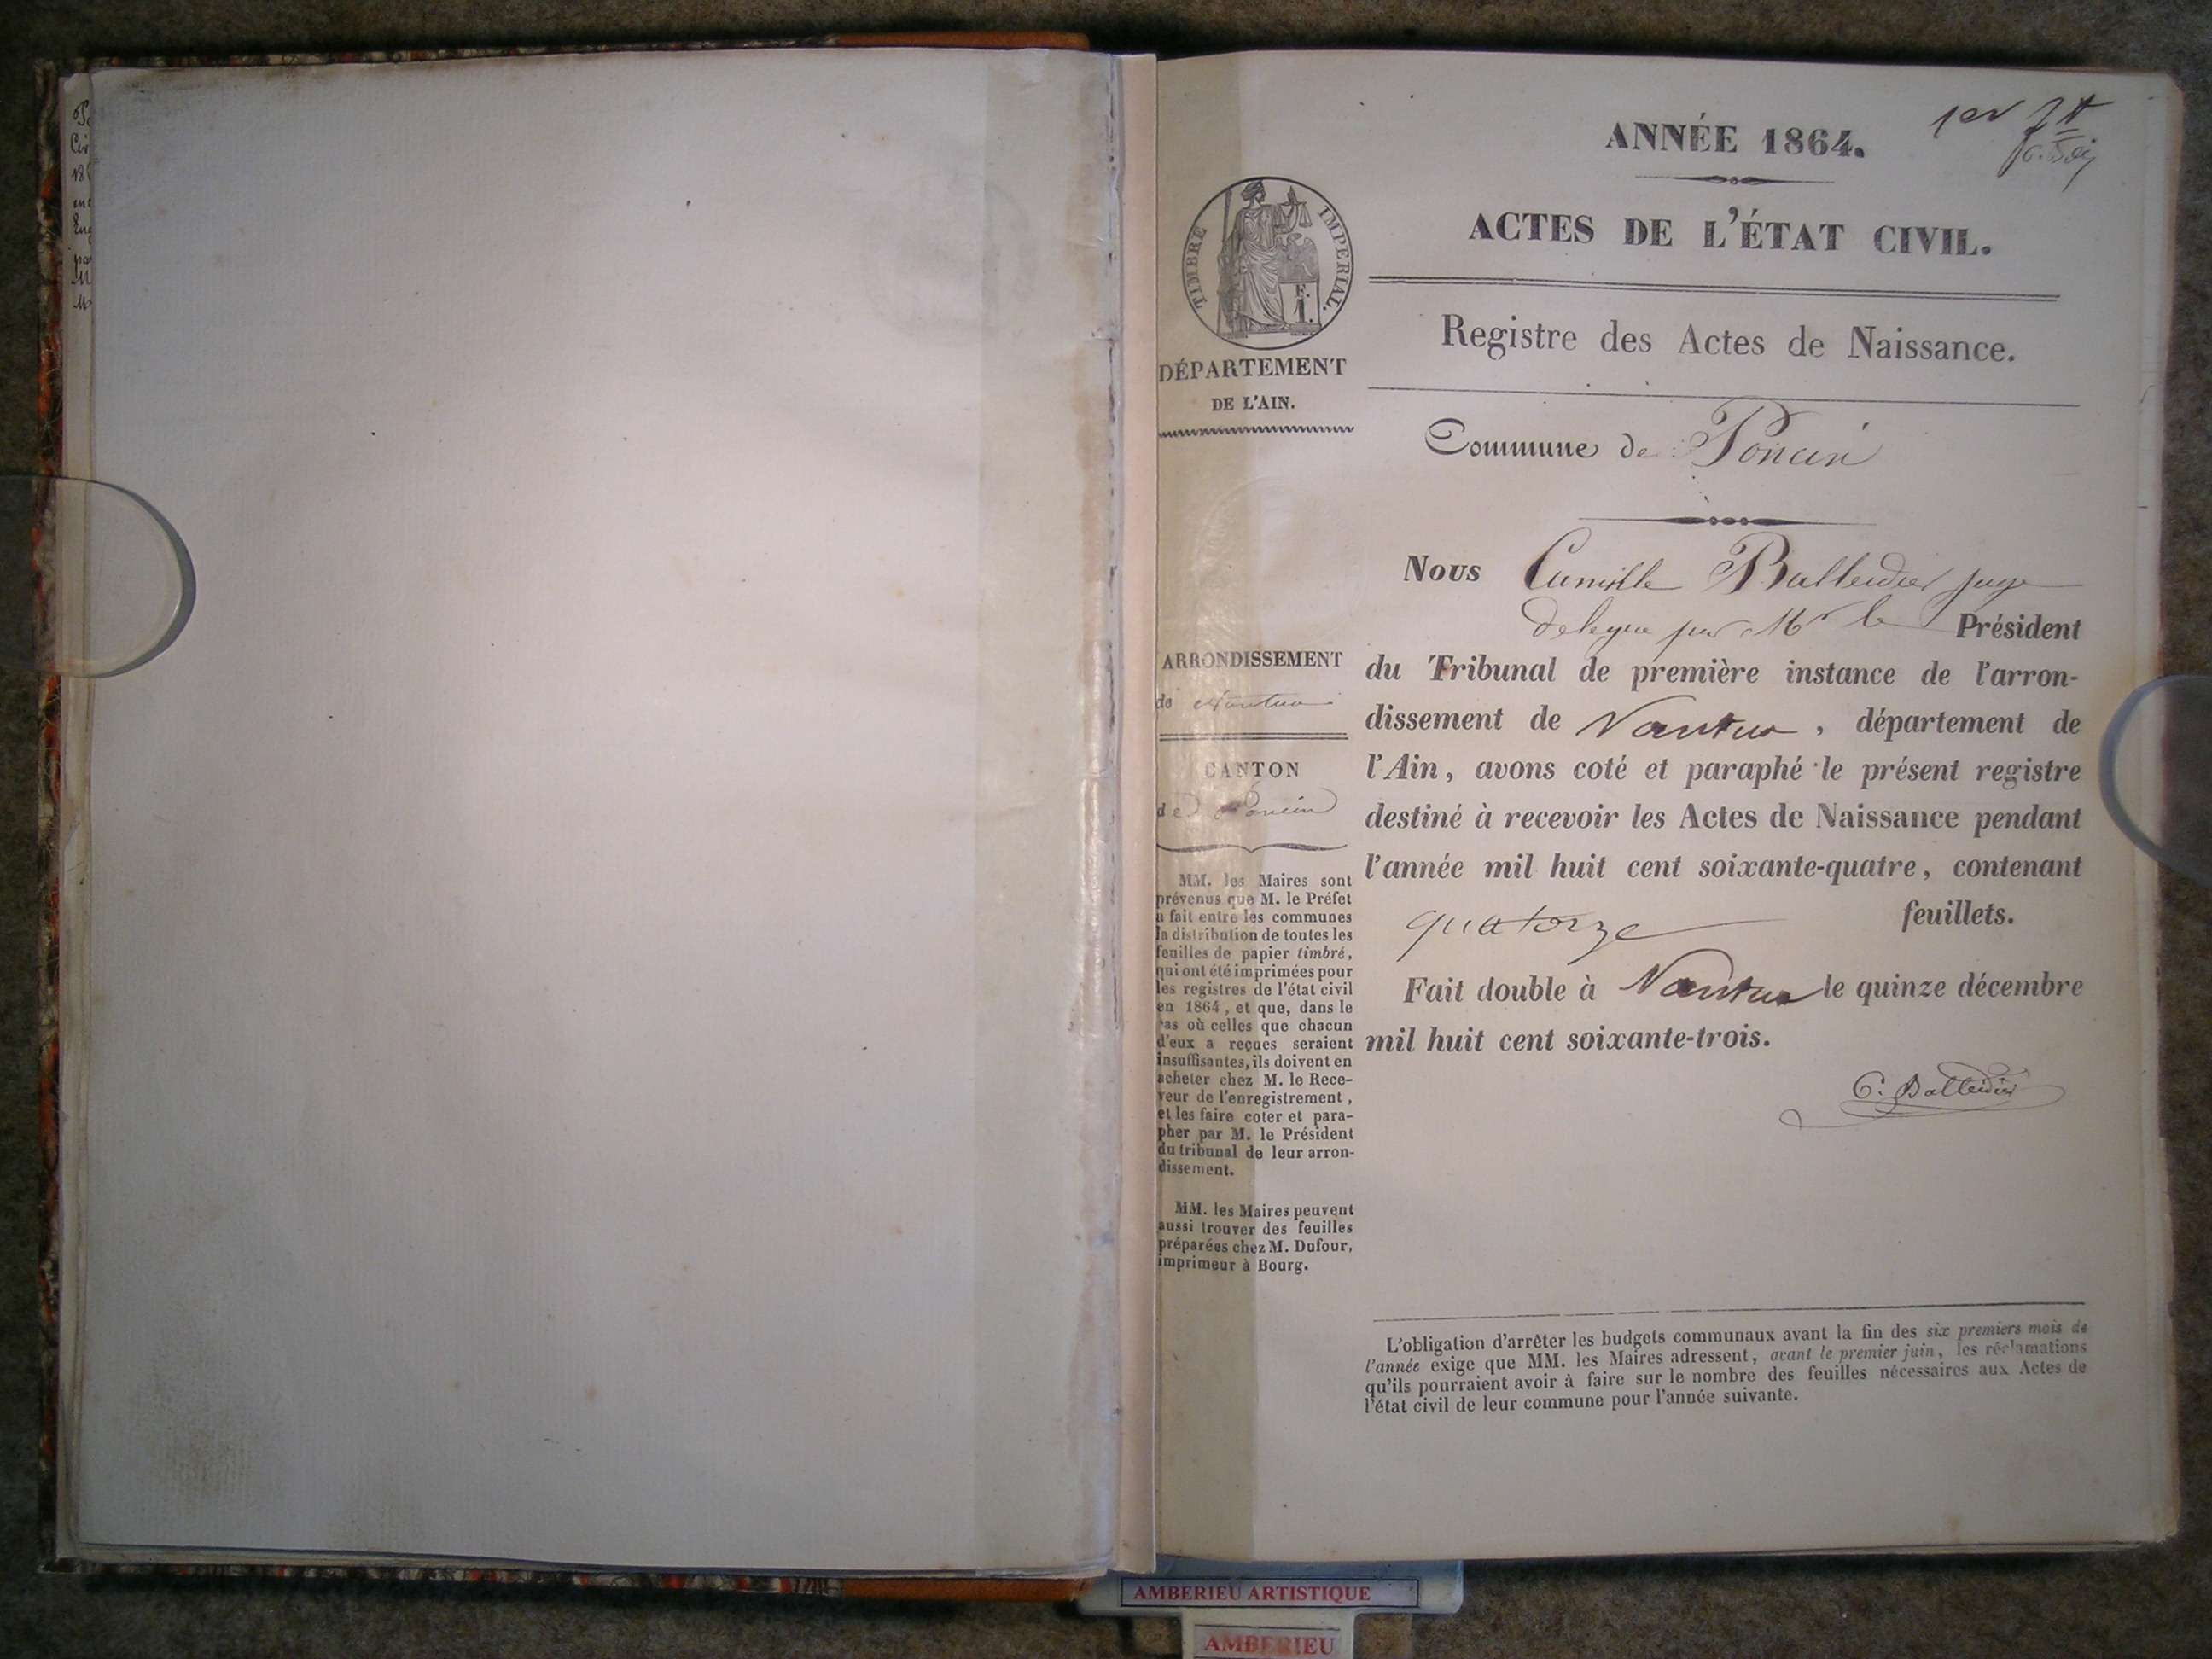 1er ft
ANNÉE 1864.
ACTES DE L'ÉTAT CIVIL.
TIMBRE IMPERIAL.
Registre des Actes de Naissance.
DÉPARTEMENT
DE L'AIN.
Commune de Poncin
Nous Camille Balleidier juge
délégué par Mr le Président
ARRONDISSEMENT
de Nantua
du Tribunal de première instance de l'arron-
dissement de Nantua, département de
CANTON
de Poncin
l'Ain, avons coté et paraphé le présent registre
destiné à recevoir les Actes de Naissance pendant
l'année mil huit cent soixante-quatre, contenant
quatorze feuillets.
Fait double à Nantua le quinze décembre
mil huit cent soixante-trois.
C. Balleidier
MM. les Maires sont
prévenus que M. le Préfet
a fait entre les communes
la distribution de toutes les
feuilles de papier timbré,
qui ont été imprimées pour
les registres de l'état civil
en 1864, et que, dans le
cas où celles que chacun
d'eux a reçues seraient
insuffisantes, ils doivent en
acheter chez M. le Rece-
veur de l'enregistrement,
et les faire coter et para-
pher par M. le Président
du tribunal de leur arron-
dissement.
MM. les Maires peuvent
aussi trouver des feuilles
préparées chez M. Dufour,
imprimeur à Bourg.
L'obligation d'arrêter les budgets communaux avant la fin des six premiers mois de
l'année exige que MM. les Maires adressent, avant le premier juin, les réclamations
qu'ils pourraient avoir à faire sur le nombre des feuilles nécessaires aux Actes de
l'état civil de leur commune pour l'année suivante.
AMBERIEU ARTISTIQUE
AMBERIEU